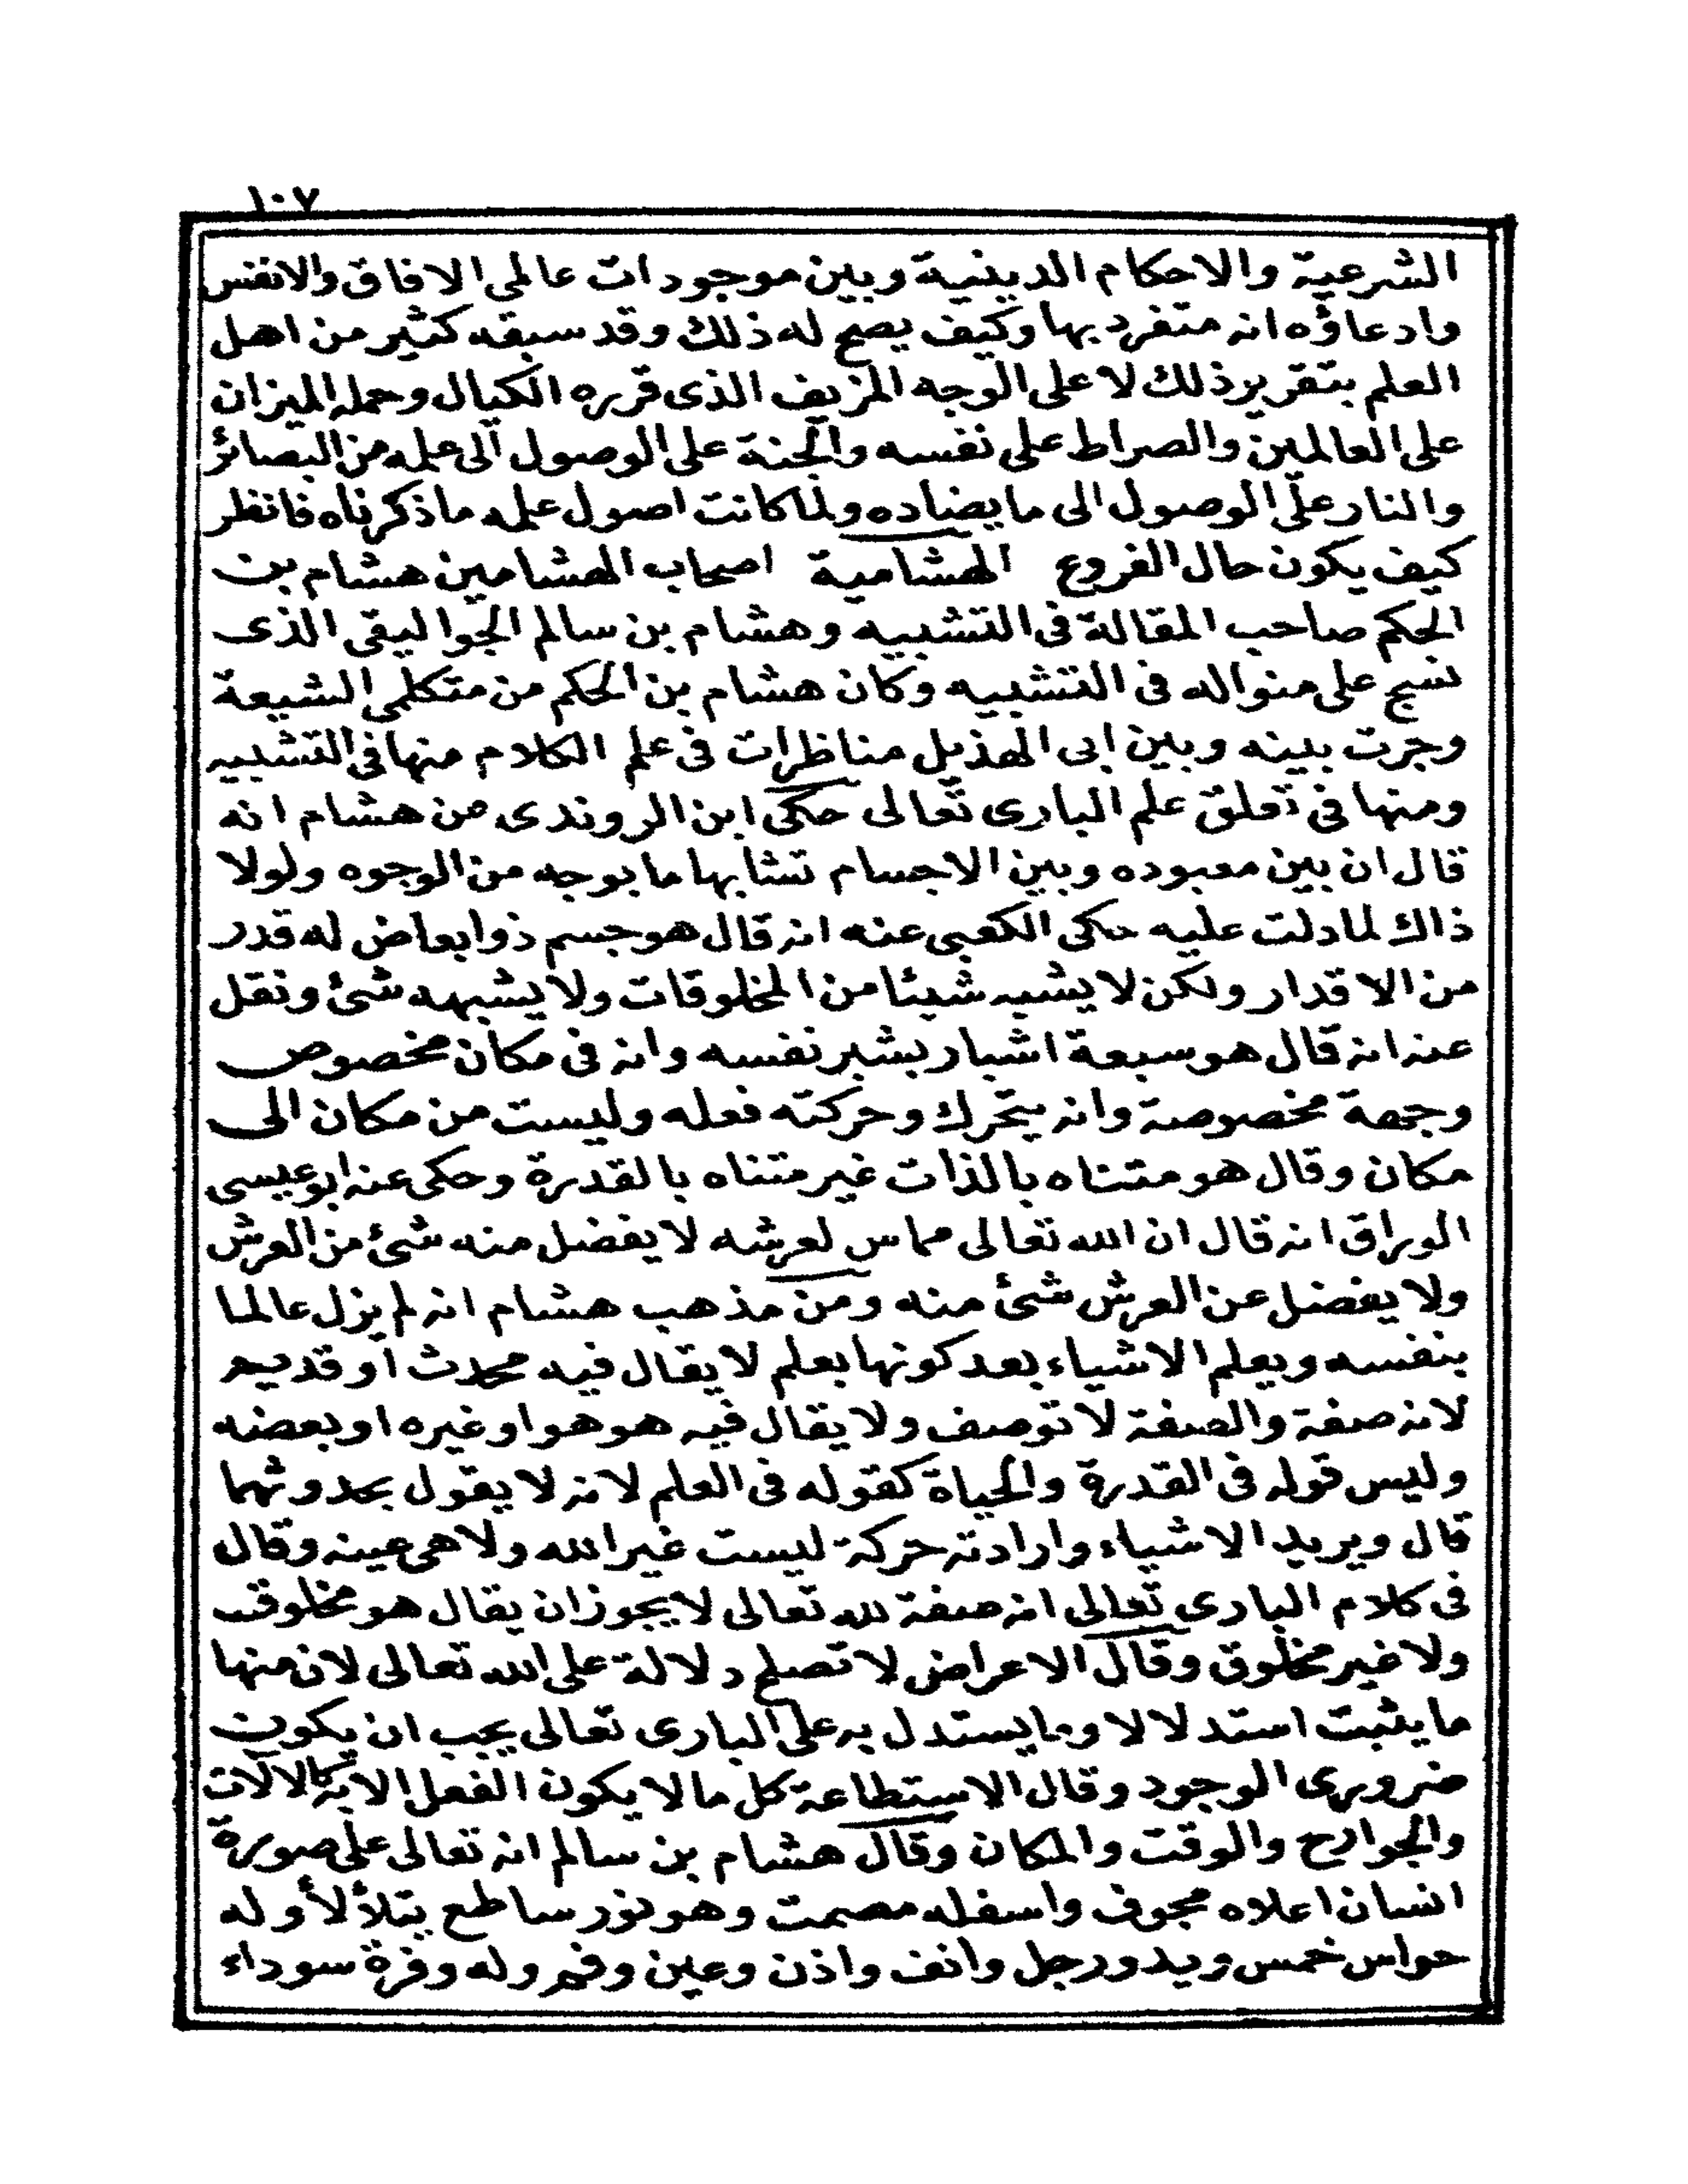 ١٠٧
الشرعية والاحكام الدينية وبين موجودات عالمي الافاق والانفس
وادعاؤه انه متفرد بها وكيف يصح له ذلك وقد سبقه كثير من اهل
العلم بتقرير ذلك لا على الوجه المزيف الذى قرره الكيال وحمله الميزان
على العالمين والصراط على نفسه والجنة على الوصول الى علمه من البصائر
والنار على الوصول الى ما يضاده ولما كانت اصول علمه ما ذكرناه فانظر
كيف يكون حال الفروع الهشامية اصحاب الهشامين هشام بن
الحكم صاحب المقالة فى التشبيه وهشام بن سالم الجواليقى الذى
نسج على منواله فى التشبيه وكان هشام بن الحكم من متكلمي الشيعة
وجرت بينه وبين ابى الهذيل مناظرات فى علم الكلام منها فى التشبيه
ومنها فى تعلق علم البارى تعالى حكى ابن الروندى من هشام انه
قال ان بين معبوده وبين الاجسام تشابها ما بوجه من الوجوه ولولا
ذاك لما دلت عليه حكى الكعبى عنه انه قال هو جسم ذو ابعاض له قدر
من الاقدار ولكن لا يشبه شيئا من المخلوقات ولا يشبهه شئ ونقل
عنه انه قال هو سبعة اشبار بشبر نفسه وانه فى مكان مخصوص
وجهة مخصوصة وانه يتحرك وحركته فعله وليست من مكان الى
مكان وقال هو متناه بالذات غير متناه بالقدرة وحكى عنه ابو عيسى
الوراق انه قال ان الله تعالى مماس لعرشه لا يفضل منه شئ من العرش
ولا يفضل عن العرش شئ منه ومن مذهب هشام انه لم يزل عالما
بنفسه ويعلم الاشياء بعد كونها بعلم لا يقال فيه محدث او قديم
لانه صفة والصفة لا توصف ولا يقال فيه هو هو او غيره او بعضه
وليس قوله فى القدرة والحياة كقوله فى العلم لانه لا يقول بحدوثهما
قال ويريد الاشياء وارادته حركة ليست غير الله ولا هى عينه وقال
فى كلام البارى تعالى انه صفة لله تعالى لا يجوز ان يقال هو مخلوق
ولا غير مخلوق وقال الاعراض لا تصلح دلالة على الله تعالى لان منها
ما يثبت استدلالا وما يستدل به على البارى تعالى يجب ان يكون
ضرورى الوجود وقال الاستطاعة كل ما لا يكون الفعل الا به كالالآت
والجوارح والوقت والمكان وقال هشام بن سالم انه تعالى على صورة
انسان اعلاه مجوف واسفله مصمت وهو نور ساطع يتلألأ وله
حواس خمس ويد ورجل وانف واذن وعين وفم وله وفرة سوداء